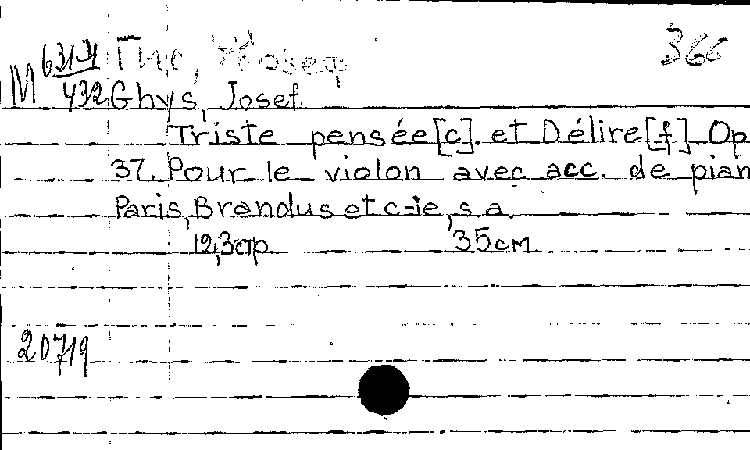 М 631-4 Гис, Жозеф 366
432 Ghys, Josef
Triste pensée [c]. et Délire [f] Op
37. Pour le violon avec acc. de pian
Paris, Brandus et c-ie, s.a.
12,3 ap. 35 см.
20719